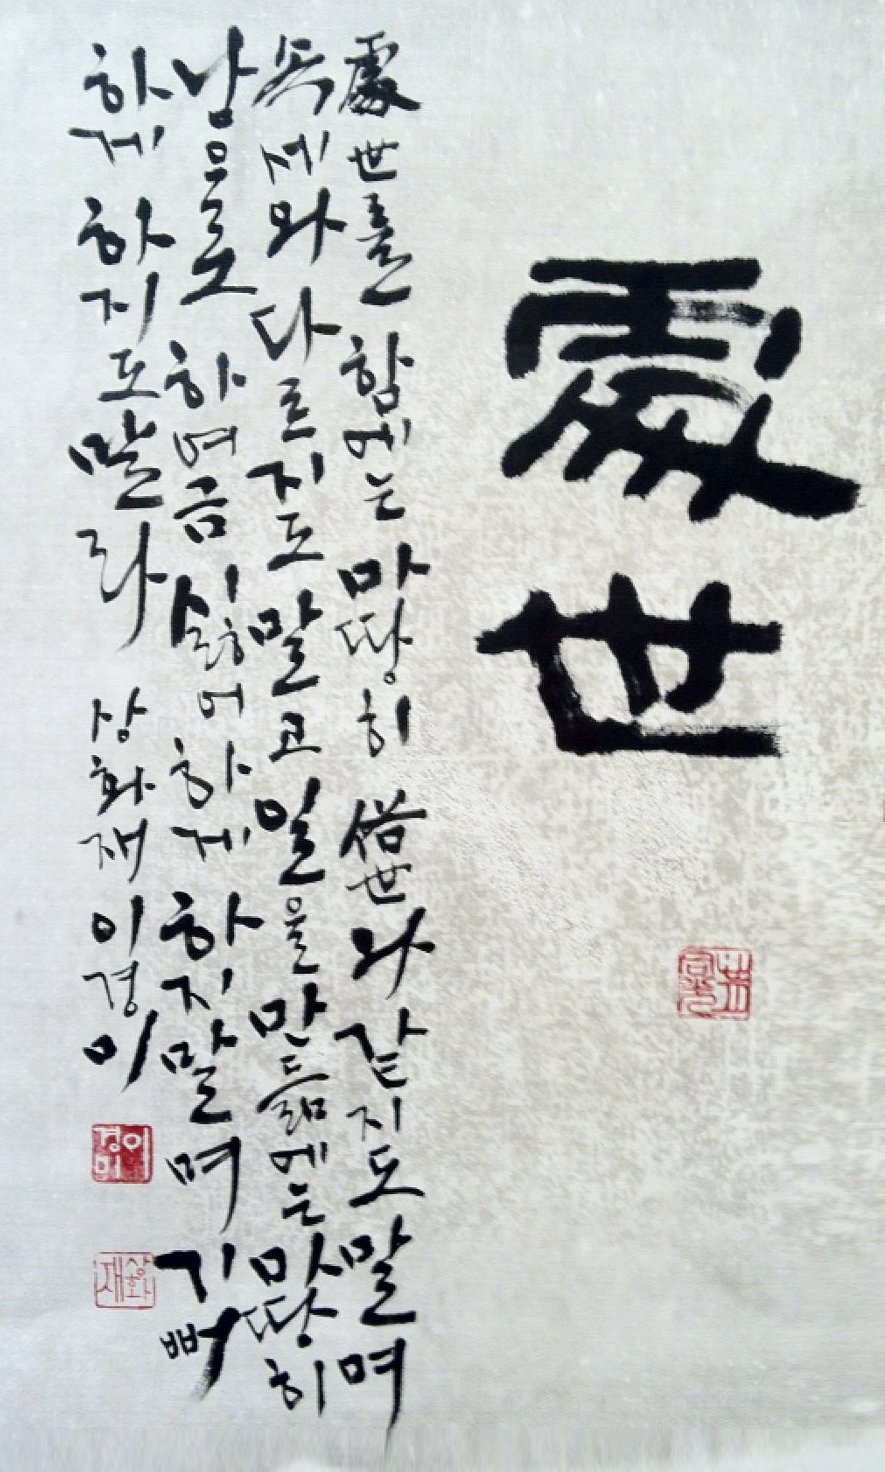 處世
處世를 함에는 마땅히 俗世와 같지도 말며
속세와 다르지도 말고 일을 만듦에는 마땅히
남으로 하여금 싫어하게 하지말며 기뻐
하게 하지도 말라 상화재 이경미
이경미
상화재